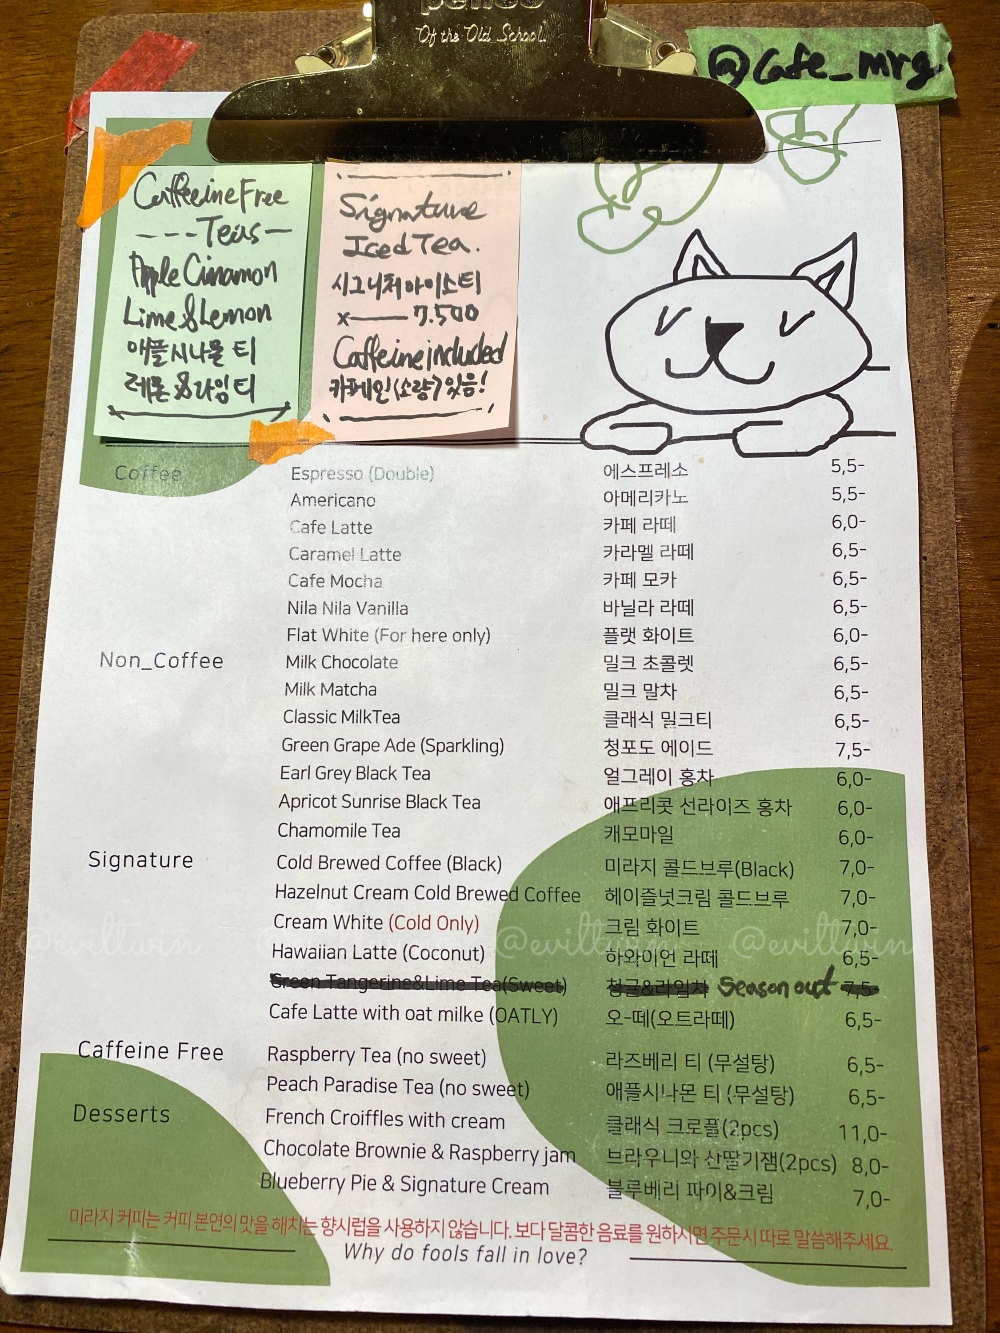 Of the Old School.
@cafe_mrg.
Caffeine Free
---Teas-
Apple Cinamon
Lime & Lemon
애플시나몬 티
레몬&라임티
Signature
Iced Tea.
시그니처아이스티
x—— 7.500
Caffeine included
카페인(소량) 있음!
Coffee Espresso (Double) 에스프레소 5,5-
Americano 아메리카노 5,5-
Cafe Latte 카페 라떼 6,0-
Caramel Latte 카라멜 라떼 6,5-
Cafe Mocha 카페 모카 6,5-
Nila Nila Vanilla 바닐라 라떼 6,5-
Flat White (For here only) 플랫 화이트 6,0-
Non_Coffee Milk Chocolate 밀크 초콜렛 6,5-
Milk Matcha 밀크 말차 6,5-
Classic MilkTea 클래식 밀크티 6,5-
Green Grape Ade (Sparkling) 청포도 에이드 7,5-
Earl Grey Black Tea 얼그레이 홍차 6,0-
Apricot Sunrise Black Tea 애프리콧 선라이즈 홍차 6,0-
Chamomile Tea 캐모마일 6,0-
Signature Cold Brewed Coffee (Black) 미라지 콜드브루(Black) 7,0-
Hazelnut Cream Cold Brewed Coffee 헤이즐넛크림 콜드브루 7,0-
Cream White (Cold Only) 크림 화이트 7,0-
@eviltwin @eviltwin @eviltwin
Hawaiian Latte (Coconut) 하와이언 라떼 6,5-
Green Tangerine&Lime Tea(Sweet) 청귤&라임차 Season out 7,5-
Cafe Latte with oat milke (OATLY) 오-떼(오트라떼) 6,5-
Caffeine Free Raspberry Tea (no sweet) 라즈베리 티 (무설탕) 6,5-
Peach Paradise Tea (no sweet) 애플시나몬 티 (무설탕) 6,5-
Desserts French Croiffles with cream 클래식 크로플(2pcs) 11,0-
Chocolate Brownie & Raspberry jam 브라우니와 산딸기잼(2pcs) 8,0-
Blueberry Pie & Signature Cream 블루베리 파이&크림 7,0-
미라지 커피는 커피 본연의 맛을 해치는 향시럽을 사용하지 않습니다. 보다 달콤한 음료를 원하시면 주문시 따로 말씀해주세요.
Why do fools fall in love?